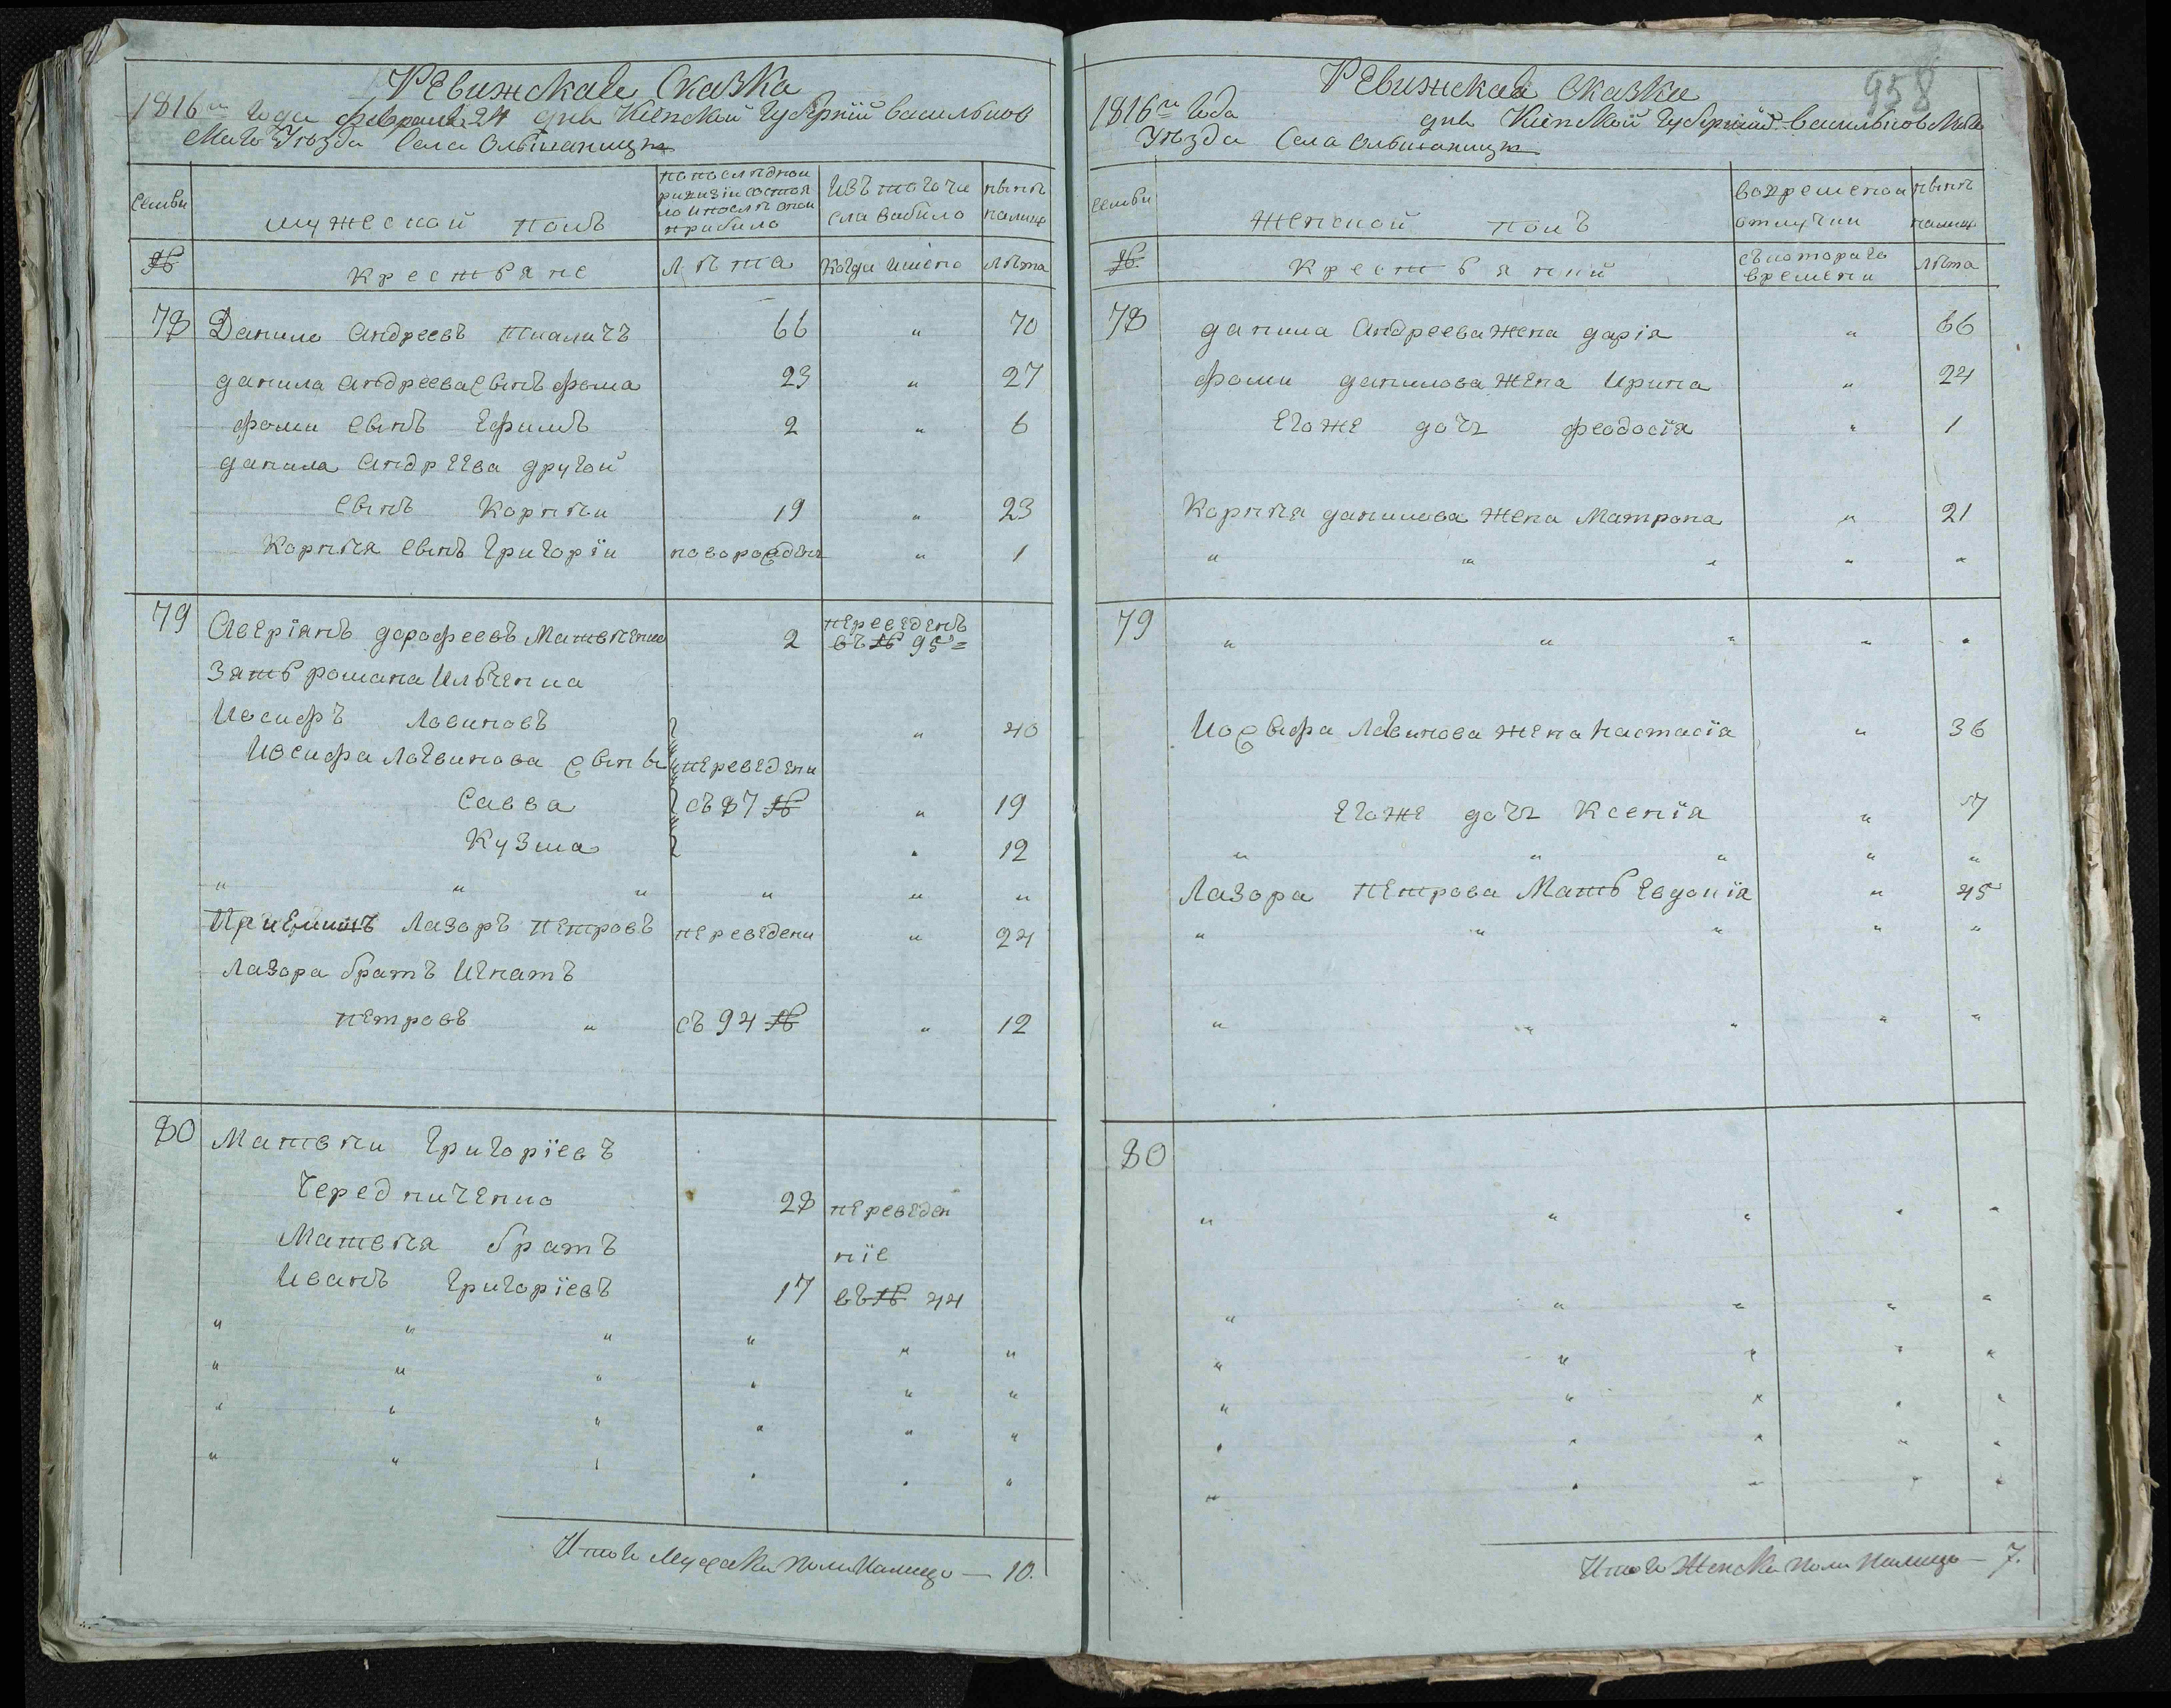 Ревижская Сказка
1816го Года февраля 24 дня Кіевской Губерніи васильков
скаго Уезда Села Ольшаницы
семьи
мужеской полъ
по последнои ревизіи состоя ло и после онои прибило
Изъ того чи сла вабило
ныне налицо
№ крестьяне Лета когди имено лета
78 Данило Андреевъ Ткаличъ 66 " 70
данила андреева сынъ фома 23 " 27
фоми сынъ Ефимъ 2 " 6
данила андреева другой
сынъ Корнеи 19 " 23
Корнея сынъ Григоріи новорожденъ " 1
79 Аверіянъ дорофеевъ Матвеенко 2 переведенъ въ № 95
Зять романа Ильченка
Иосифъ Логвиновъ " 40
Иосифа Логвинова сыны переведени
Савва съ 87 № " 19
Кузма " 12
" " " " " "
Приемишъ Лазоръ петровъ переведени " 24
Лазора братъ Игнатъ
петровъ " съ 94 № " 12
80 Матвеи Григоріевъ
Чередниченко 28 переведен
Матвея братъ ніе
Иванъ Григоріевъ 17 въ № 44
" " " " " "
" " " " " "
" " " " " "
" " " " " "
Итого Мужеска пола налицо — 10.
958
Ревижская Сказка
1816го Года дня Кіевской Губерніи васильковскаго
Уезда Села Ольшаницы
семьи
женской полъ
во временои отлучки
ныне налицо
№ крестьянки съ котораго времени лета
78 данила Андреева жена дарія " 66
фоми данилова жена Ирина " 24
Егоже дочь феодосія " 1
Корнея данилова жена Матрона " 21
" " " " "
79 " " " " "
Иосифа Логвинова жена настасія " 36
Егоже дочь Ксенія " 7
" " " " "
Лазора петрова Мать Евдокія " 45
" " " " "
" " " " "
80
" " " " "
" " " " "
" " " " "
" " " " "
" " " " "
" " " " "
Итого Женска пола налицо — 7.